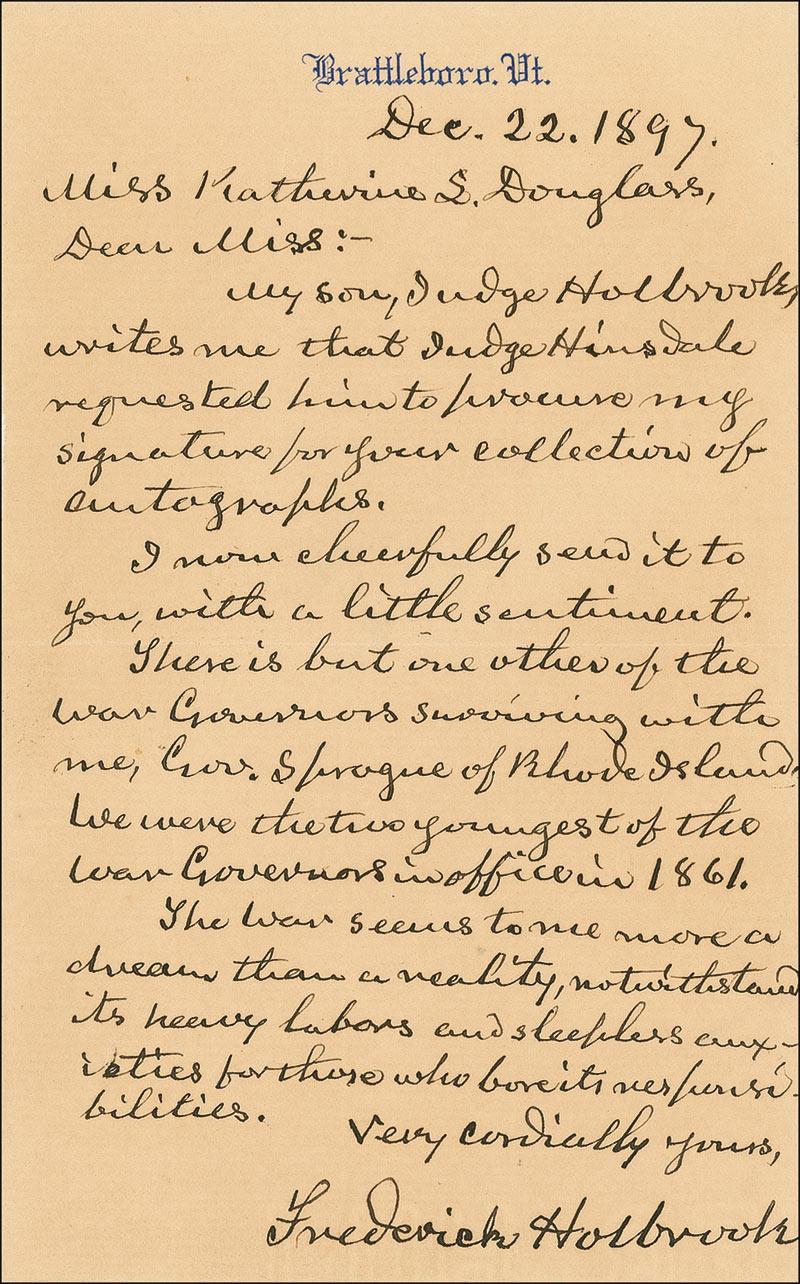 Brattleboro. Vt.
Dec. 22. 1897.
Miss Katherine L. Douglass,
Dear Miss:-
My son, Judge Holbrook,
writes me that Judge Hinsdale
requested him to procure my
signature for your collection of
autographs.
I now cheerfully send it to
you, with a little sentiment.
There is but one other of the
war Governors surviving with
me, Gov. Sprague of Rhode Island.
We were the two youngest of the
war Governors in office in 1861.
The war seems to me more a
dream than a reality, notwithstand
its heavy labors and sleepless anx-
ieties for those who bore its responsi-
bilities.
Very cordially yours,
Frederick Holbrook